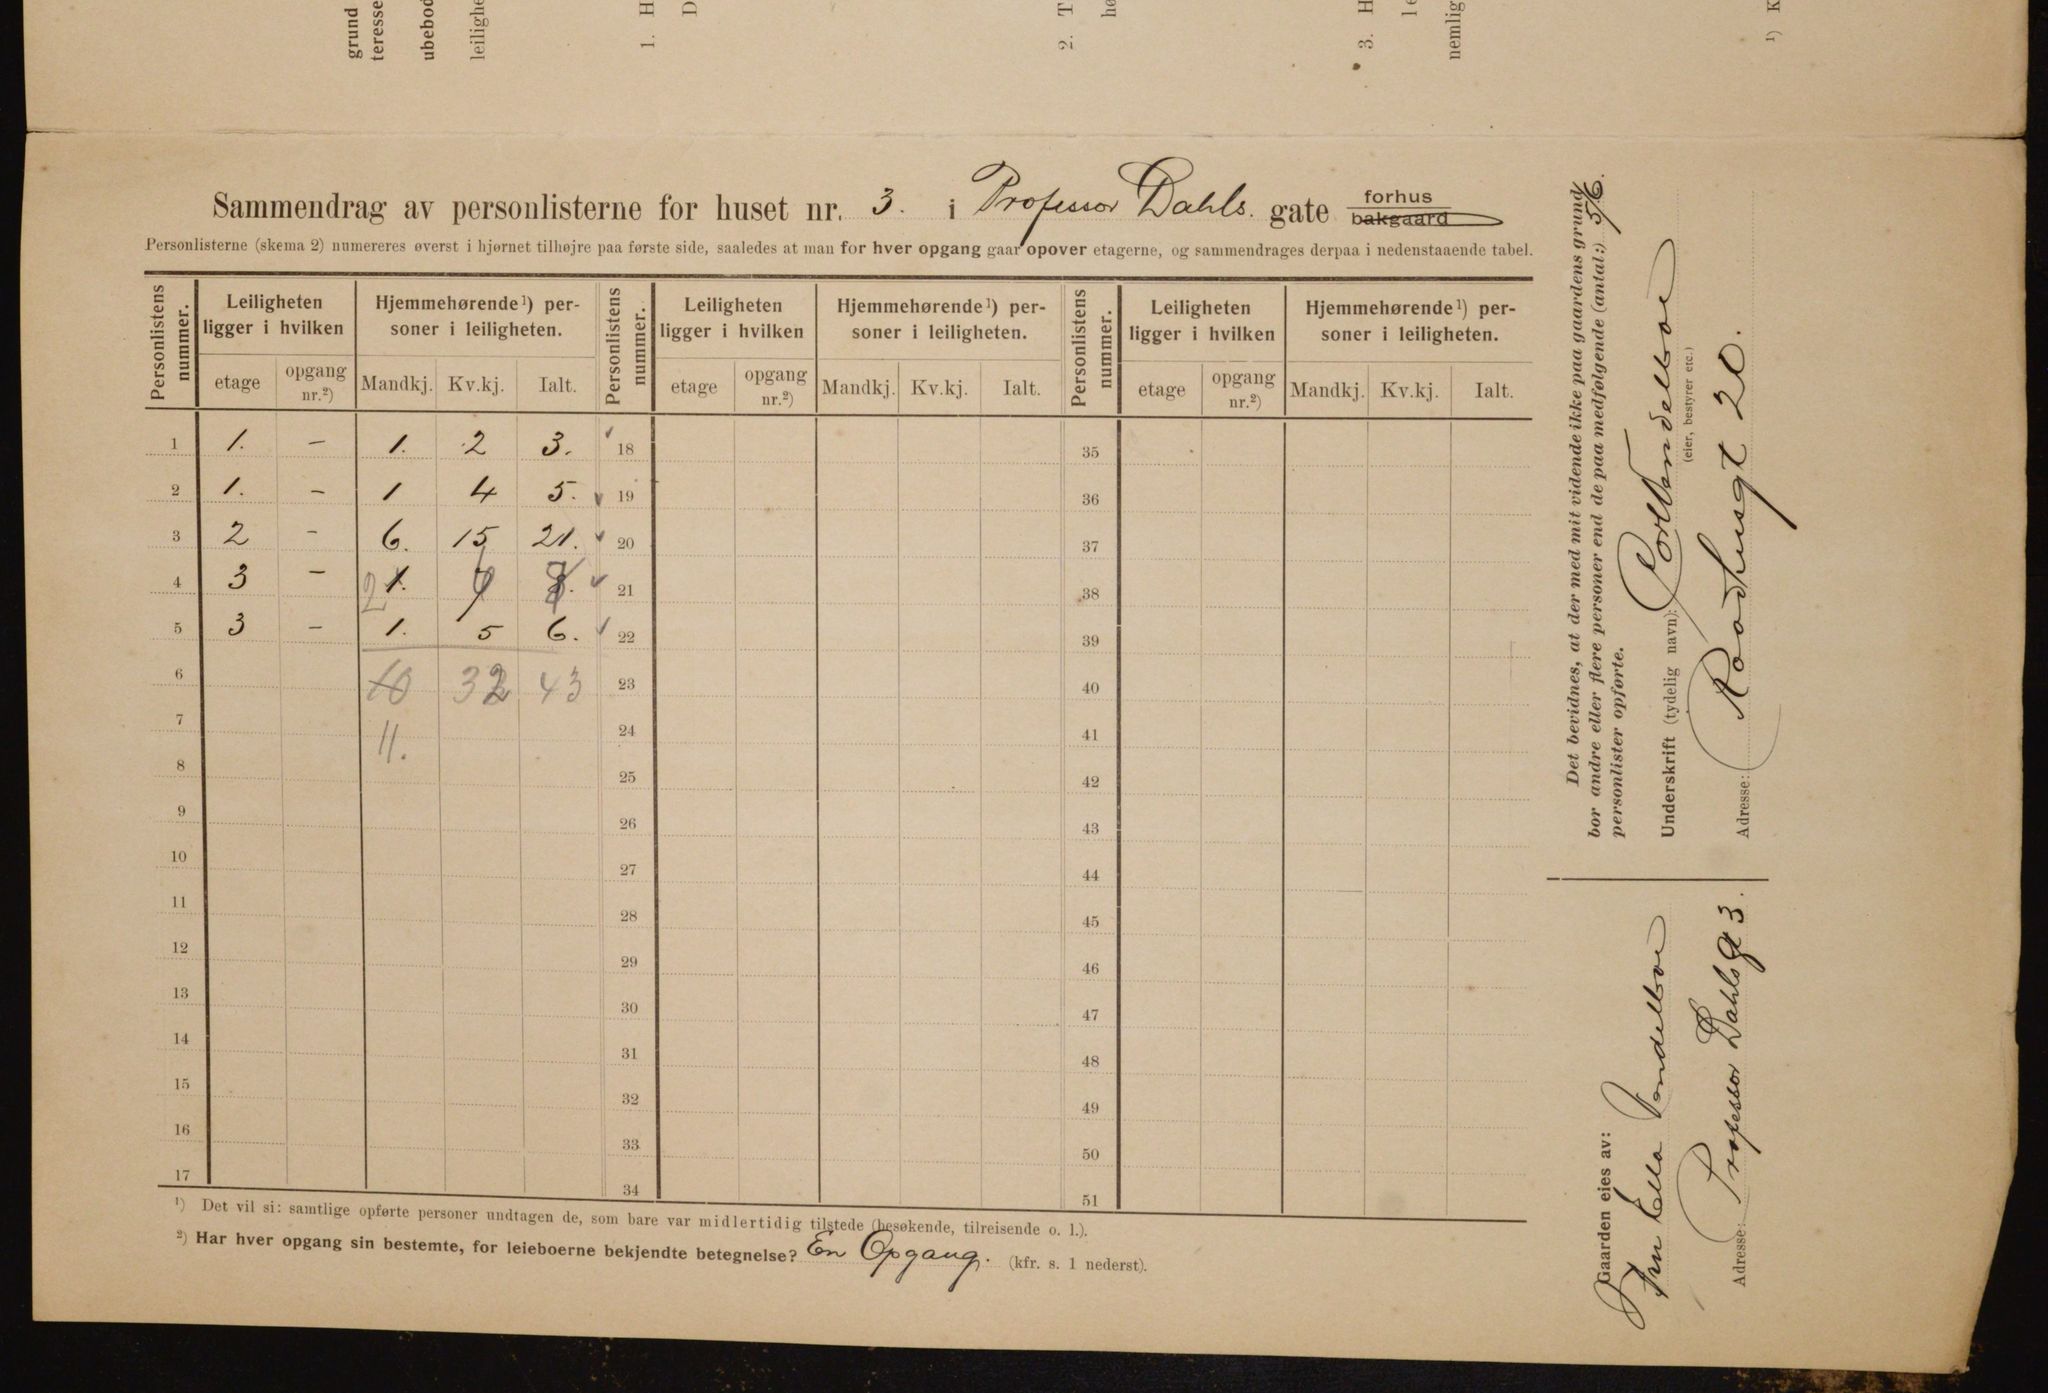 grund
teresse
ubebod
leilighe
1. H
D
2. T
hø
3. H
le
nemlig
¹) K
Sammendrag av personlisterne for huset nr. 3. i Professor Dahls. gate forhus
bakgaard
Personlisterne (skema 2) numereres øverst i hjørnet tilhøjre paa første side, saaledes at man for hver opgang gaar opover etagerne, og sammendrages derpaa i nedenstaaende tabel.
Personlistens nummer. Leiligheten ligger i hvilken Hjemmehørende¹) personer i leiligheten. Personlistens nummer. Leiligheten ligger i hvilken Hjemmehørende¹) personer i leiligheten. Personlistens nummer. Leiligheten ligger i hvilken Hjemmehørende¹) personer i leiligheten.
etage opgang nr.²) Mandkj. Kv.kj. Ialt. etage opgang nr.²) Mandkj. Kv.kj. Ialt. etage opgang nr.²) Mandkj. Kv.kj. Ialt.
1 1. – 1. 2 3. ✓ 18 35
2 1. – 1 4 5. ✓ 19 36
3 2 – 6. 15 21. ✓ 20 37
4 3 – 2 1. ✓ 21 38
5 3 – 1. 5 6. ✓ 22 39
6 10 32 43 23 40
7 11. 24 41
8 25 42
9 26 43
10 27 44
11 28 45
12 29 46
13 30 47
14 31 48
15 32 49
16 33 50
17 34 51
¹) Det vil si: samtlige opførte personer undtagen de, som bare var midlertidig tilstede (besøkende, tilreisende o. l.).
²) Har hver opgang sin bestemte, for leieboerne bekjendte betegnelse? En Opgang. (kfr. s. 1 nederst).
Det bevidnes, at der med mit vidende ikke paa gaardens grund
bor andre eller flere personer end de paa medfølgende (antal:) 5/6.
personlister opførte.
Underskrift (tydelig navn):
(eier, bestyrer etc.)
Adresse: Raadhusgt 20.
Gaarden eies av:
Fru Ella
Adresse: Professor Dahlsgt 3.